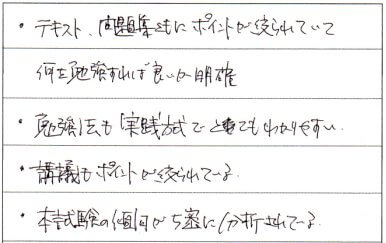 ・テキスト、問題集ともにポイントが絞られていて
何を勉強すれば良いか明確
・勉強法も「実践」方式でとてもわかりやすい.
・講議もポイントが絞られている.
・本試験の傾向がち密に分析されている.